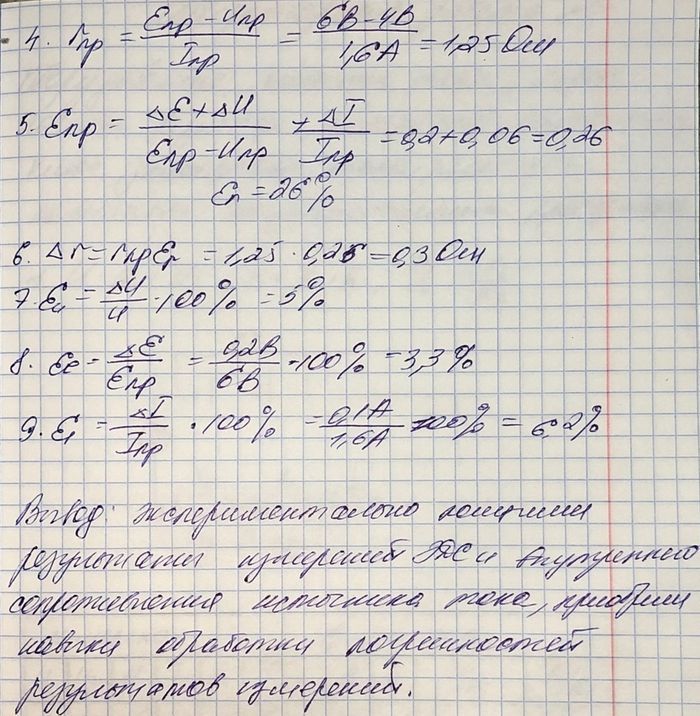 4. rпр = (Eпр − Uпр)/Iпр = (6В − 4В)/1,6А = 1,25 Ом
5. Eпр = (ΔE + ΔU)/(Eпр − Uпр) + ΔI/Iпр = 0,2 + 0,06 = 0,26
Er = 26%
6. Δr = rпр Er = 1,25 · 0,26 = 0,3 Ом
7. Eu = ΔU/U · 100% = 5%
8. Eε = ΔE/Eпр = 0,2В/6В · 100% = 3,3%
9. EI = ΔI/Iпр · 100% = 0,1А/1,6А · 100% = 6,2%
Вывод: экспериментально получили
результаты измерений ЭДС и внутреннего
сопротивления источника тока, приобрели
навыки обработки погрешностей
результатов измерений.